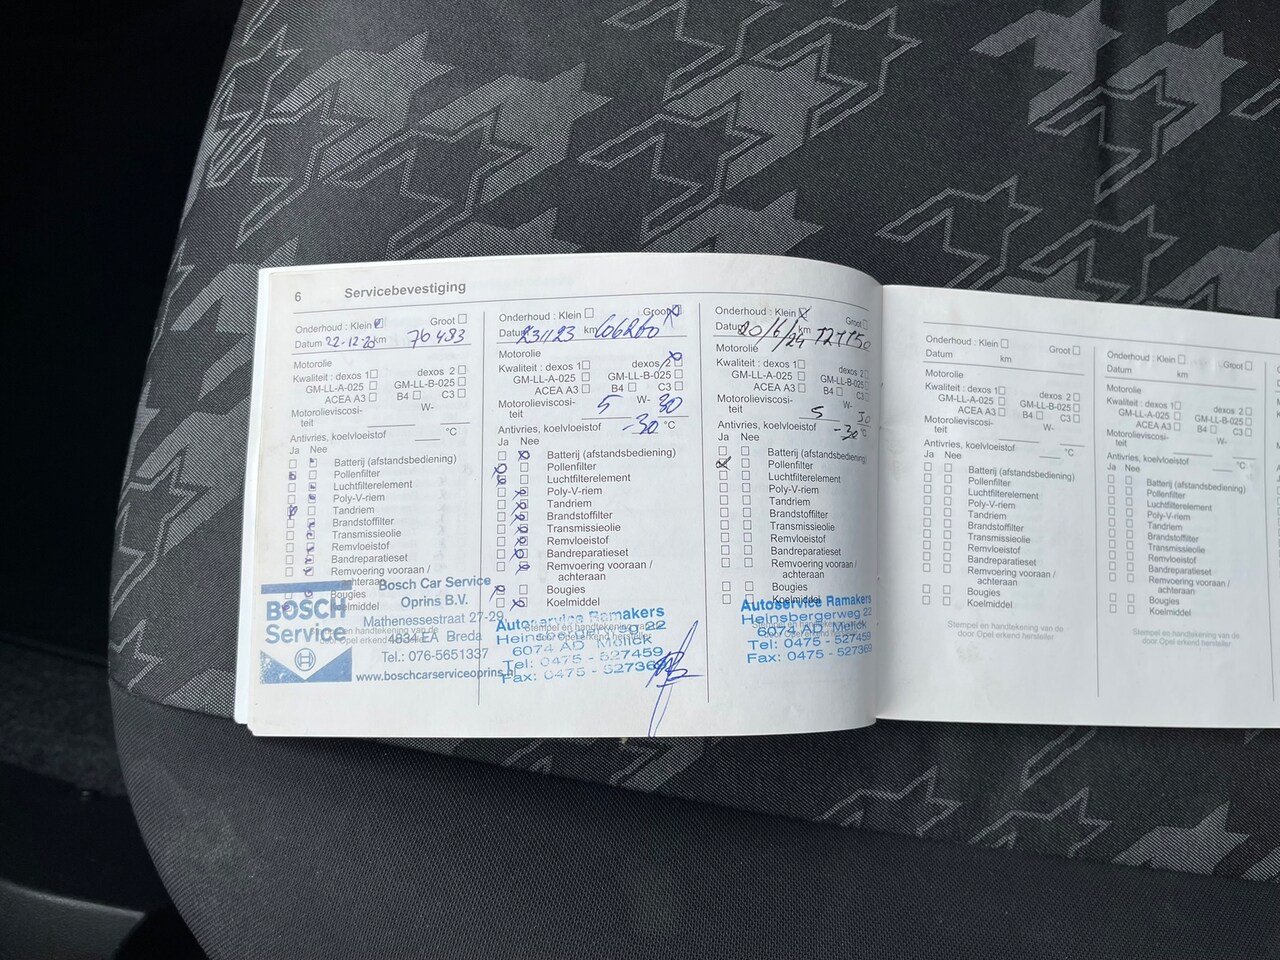 6 Servicebevestiging
Onderhoud : Klein Groot
Datum 22-12-20 km 76 483
Motorolie
Kwaliteit : dexos 1 dexos 2
GM-LL-A-025 GM-LL-B-025
ACEA A3 B4 C3
Motorolieviscosi- W-
teit
Antivries, koelvloeistof °C
Ja Nee
Batterij (afstandsbediening)
Pollenfilter
Luchtfilterelement
Poly-V-riem
Tandriem
Brandstoffilter
Transmissieolie
Remvloeistof
Bandreparatieset
Remvoering vooraan /
achteraan
Bougies
Koelmiddel
BOSCH
Service
Bosch Car Service
Oprins B.V.
Mathenessestraat 27-29
4834 EA Breda
Tel.: 076-5651337
www.boschcarserviceoprins.nl
Onderhoud : Klein Groot
Datum km
Motorolie
Kwaliteit : dexos 1 dexos 2
GM-LL-A-025 GM-LL-B-025
ACEA A3 B4 C3
Motorolieviscosi- 5 W- 30
teit
Antivries, koelvloeistof -30 °C
Ja Nee
Batterij (afstandsbediening)
Pollenfilter
Luchtfilterelement
Poly-V-riem
Tandriem
Brandstoffilter
Transmissieolie
Remvloeistof
Bandreparatieset
Remvoering vooraan /
achteraan
Bougies
Koelmiddel
Autoservice Ramakers
Heinsbergerweg 22
6074 AD Melick
Tel: 0475 - 527459
Fax: 0475 - 527369
Onderhoud : Klein Groot
Datum 20/6/24 km
Motorolie
Kwaliteit : dexos 1 dexos 2
GM-LL-A-025 GM-LL-B-025
ACEA A3 B4 C3
Motorolieviscosi- 5 W- 30
teit
Antivries, koelvloeistof -30 °C
Ja Nee
Batterij (afstandsbediening)
Pollenfilter
Luchtfilterelement
Poly-V-riem
Tandriem
Brandstoffilter
Transmissieolie
Remvloeistof
Bandreparatieset
Remvoering vooraan /
achteraan
Bougies
Koelmiddel
Autoservice Ramakers
Heinsbergerweg 22
6074 AD Melick
Tel: 0475 - 527459
Fax: 0475 - 527369
Onderhoud : Klein Groot
Datum km
Motorolie
Kwaliteit : dexos 1 dexos 2
GM-LL-A-025 GM-LL-B-025
ACEA A3 B4 C3
Motorolieviscosi- W-
teit
Antivries, koelvloeistof °C
Ja Nee
Batterij (afstandsbediening)
Pollenfilter
Luchtfilterelement
Poly-V-riem
Tandriem
Brandstoffilter
Transmissieolie
Remvloeistof
Bandreparatieset
Remvoering vooraan /
achteraan
Bougies
Koelmiddel
Stempel en handtekening van de
door Opel erkend hersteller
Onderhoud : Klein Groot
Datum km
Motorolie
Kwaliteit : dexos 1 dexos 2
GM-LL-A-025 GM-LL-B-025
ACEA A3 B4 C3
Motorolieviscosi- W-
teit
Antivries, koelvloeistof °C
Ja Nee
Batterij (afstandsbediening)
Pollenfilter
Luchtfilterelement
Poly-V-riem
Tandriem
Brandstoffilter
Transmissieolie
Remvloeistof
Bandreparatieset
Remvoering vooraan /
achteraan
Bougies
Koelmiddel
Stempel en handtekening van de
door Opel erkend hersteller